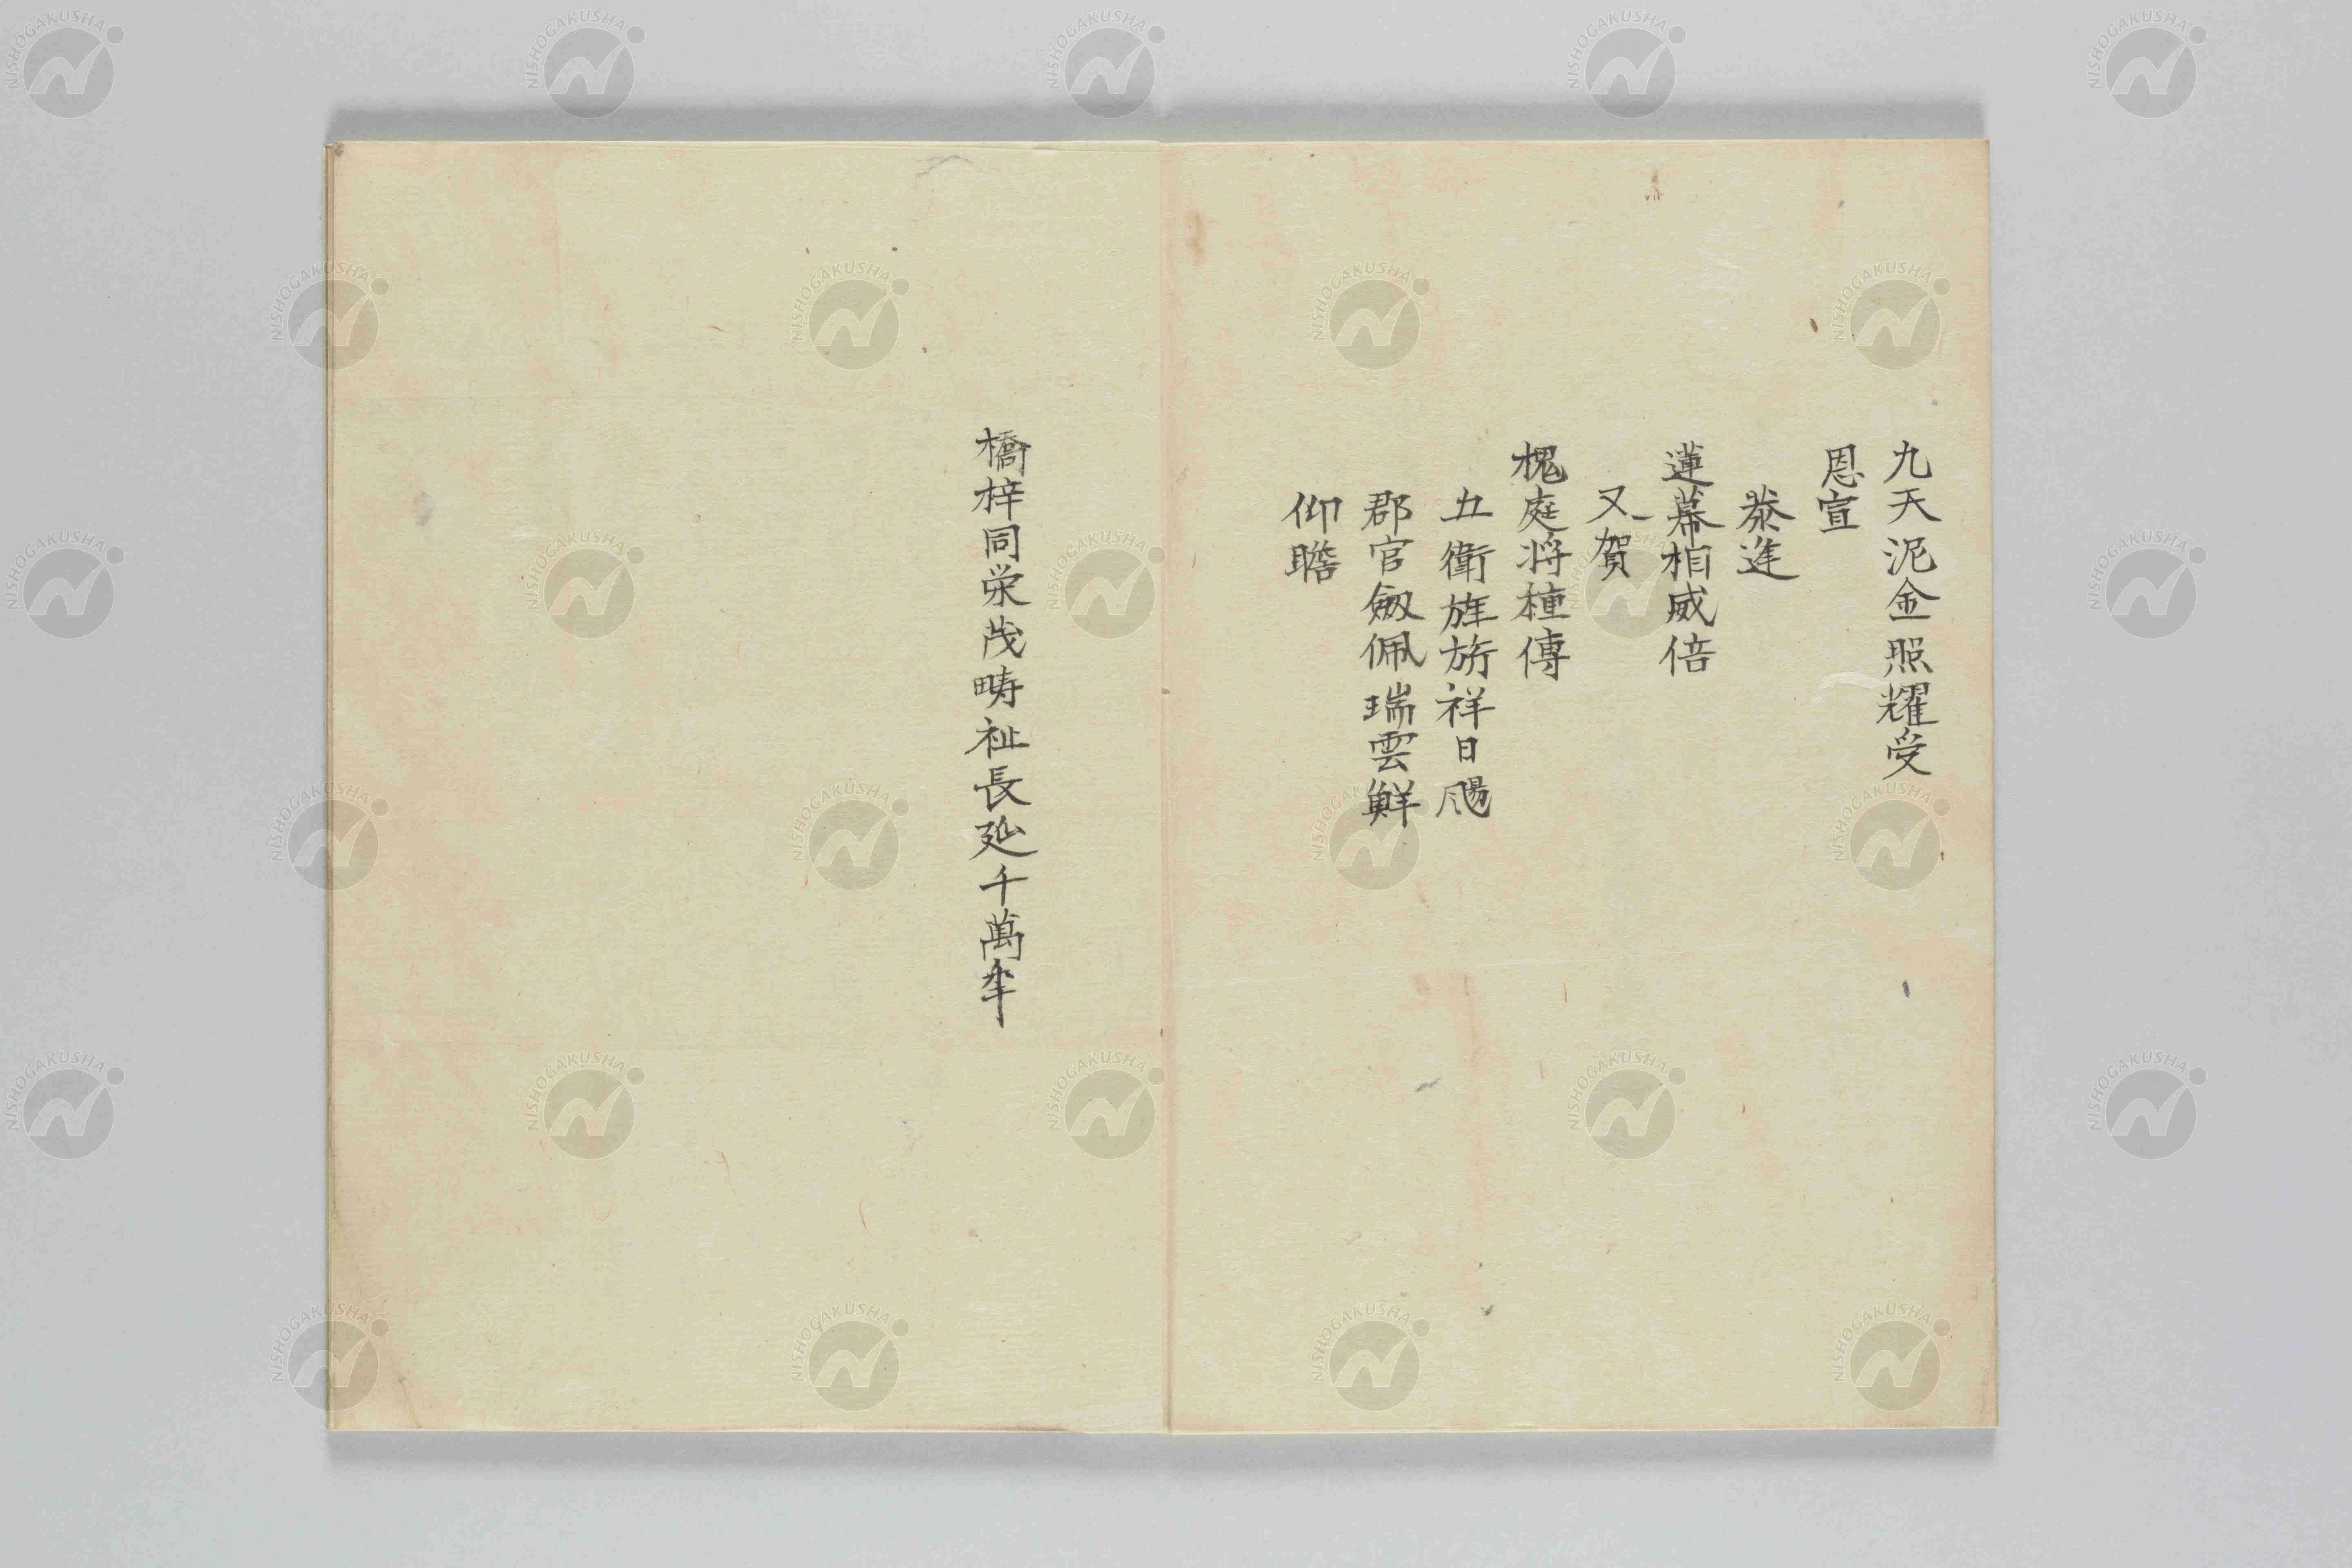 九天泥金照耀受
恩宣
恭進
蓮幕相威倍
又賀
槐庭将種傳
五衛旌旂祥日颺
郡官劔佩瑞雲鮮
仰瞻
橋梓同栄茂
疇祉長延千萬年